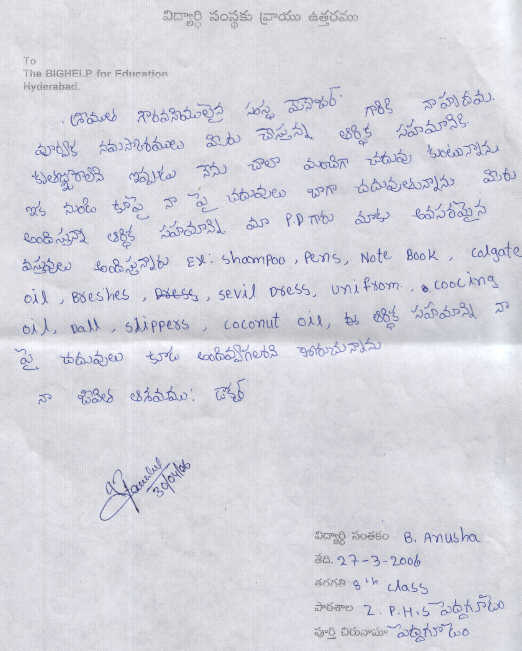 విద్యార్థి సంస్థకు వ్రాయు ఉత్తరము
To
The BIGHELP for Education
Hyderabad.
గౌరవనీయులైన సంస్థ మేనేజర్ గారికి నా హృదయ
పూర్వక నమస్కారములు మీరు చేస్తున్న ఆర్థిక సహయానికి
కృతజ్ఞురాలిని ఇప్పుడు నేను చాలా మంచిగా చదువు కుంటున్నాను
ఇక నుండి కూడా నా పై చదువులు బాగా చదువుతున్నాను మీరు
అందిస్తున్న ఆర్థిక సహయాన్ని మా P.D గారు మాకు అవసరమైన
వస్తువులు అందిస్తున్నారు Ex: shampoo, Pens, Note Book, Colgate
oil, Breshes, Dress, sevil Dress, unifrom, coocing
oil, Dall, slippers, coconut oil, ఈ ఆర్థిక సహయాన్ని నా
పై చదువులు కూడ అందివ్వగలరని కోరుచున్నాను
నా జీవిత ఆశయము: డాక్టర్
30/04/06
విద్యార్థి సంతకం B. Anusha
తేది. 27-3-2006
తరగతి 8th class
పాఠశాల Z.P.H.S పెద్దగూడెం
పూర్తి చిరునామా పెద్దగూడెం